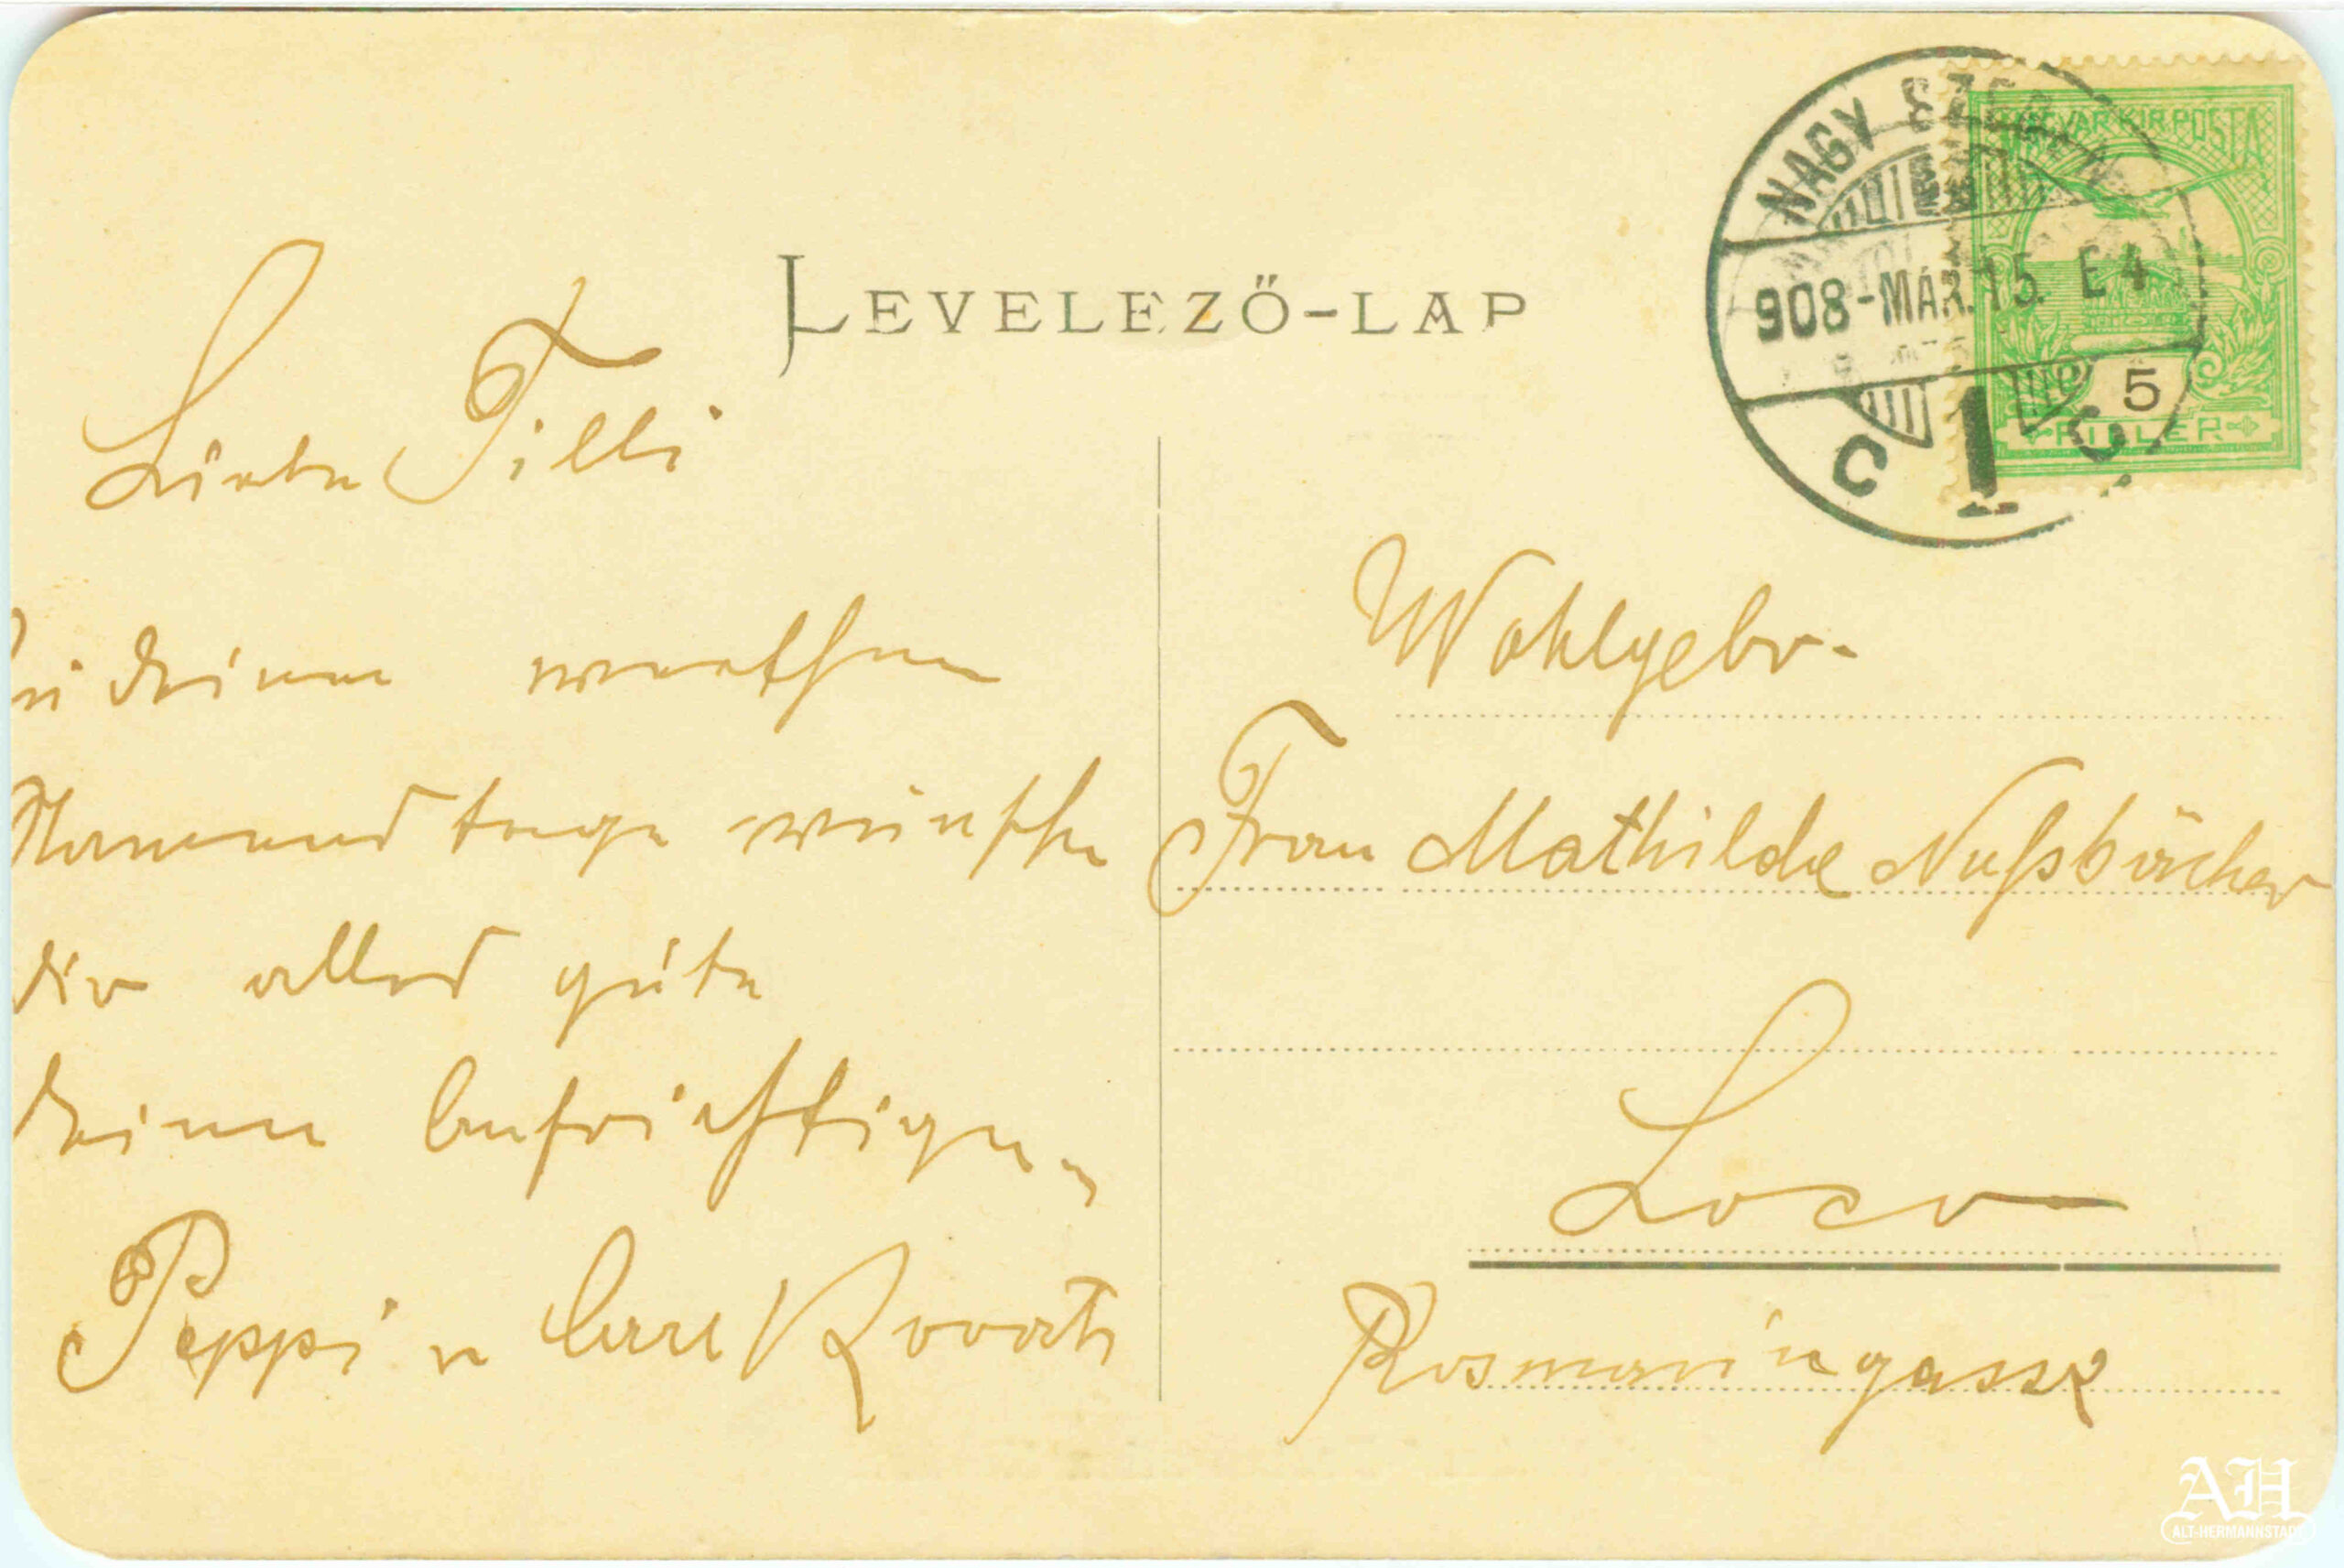 LEVELEZŐ-LAP
NAGY SZEBEN
908-MÁR.15. E4
C 1 C
MAGYAR KIR POSTA
5
FILLER
Liebe Tilli
Zu deinem werthen
Namensdtage wünsche
dir alles gute
deine aufrichtigen
Peppi u Carl
Wohlgebr.
Frau Mathilde Nußbächer
Loco
Rosmaringasse
AH
ALT-HERMANNSTADT